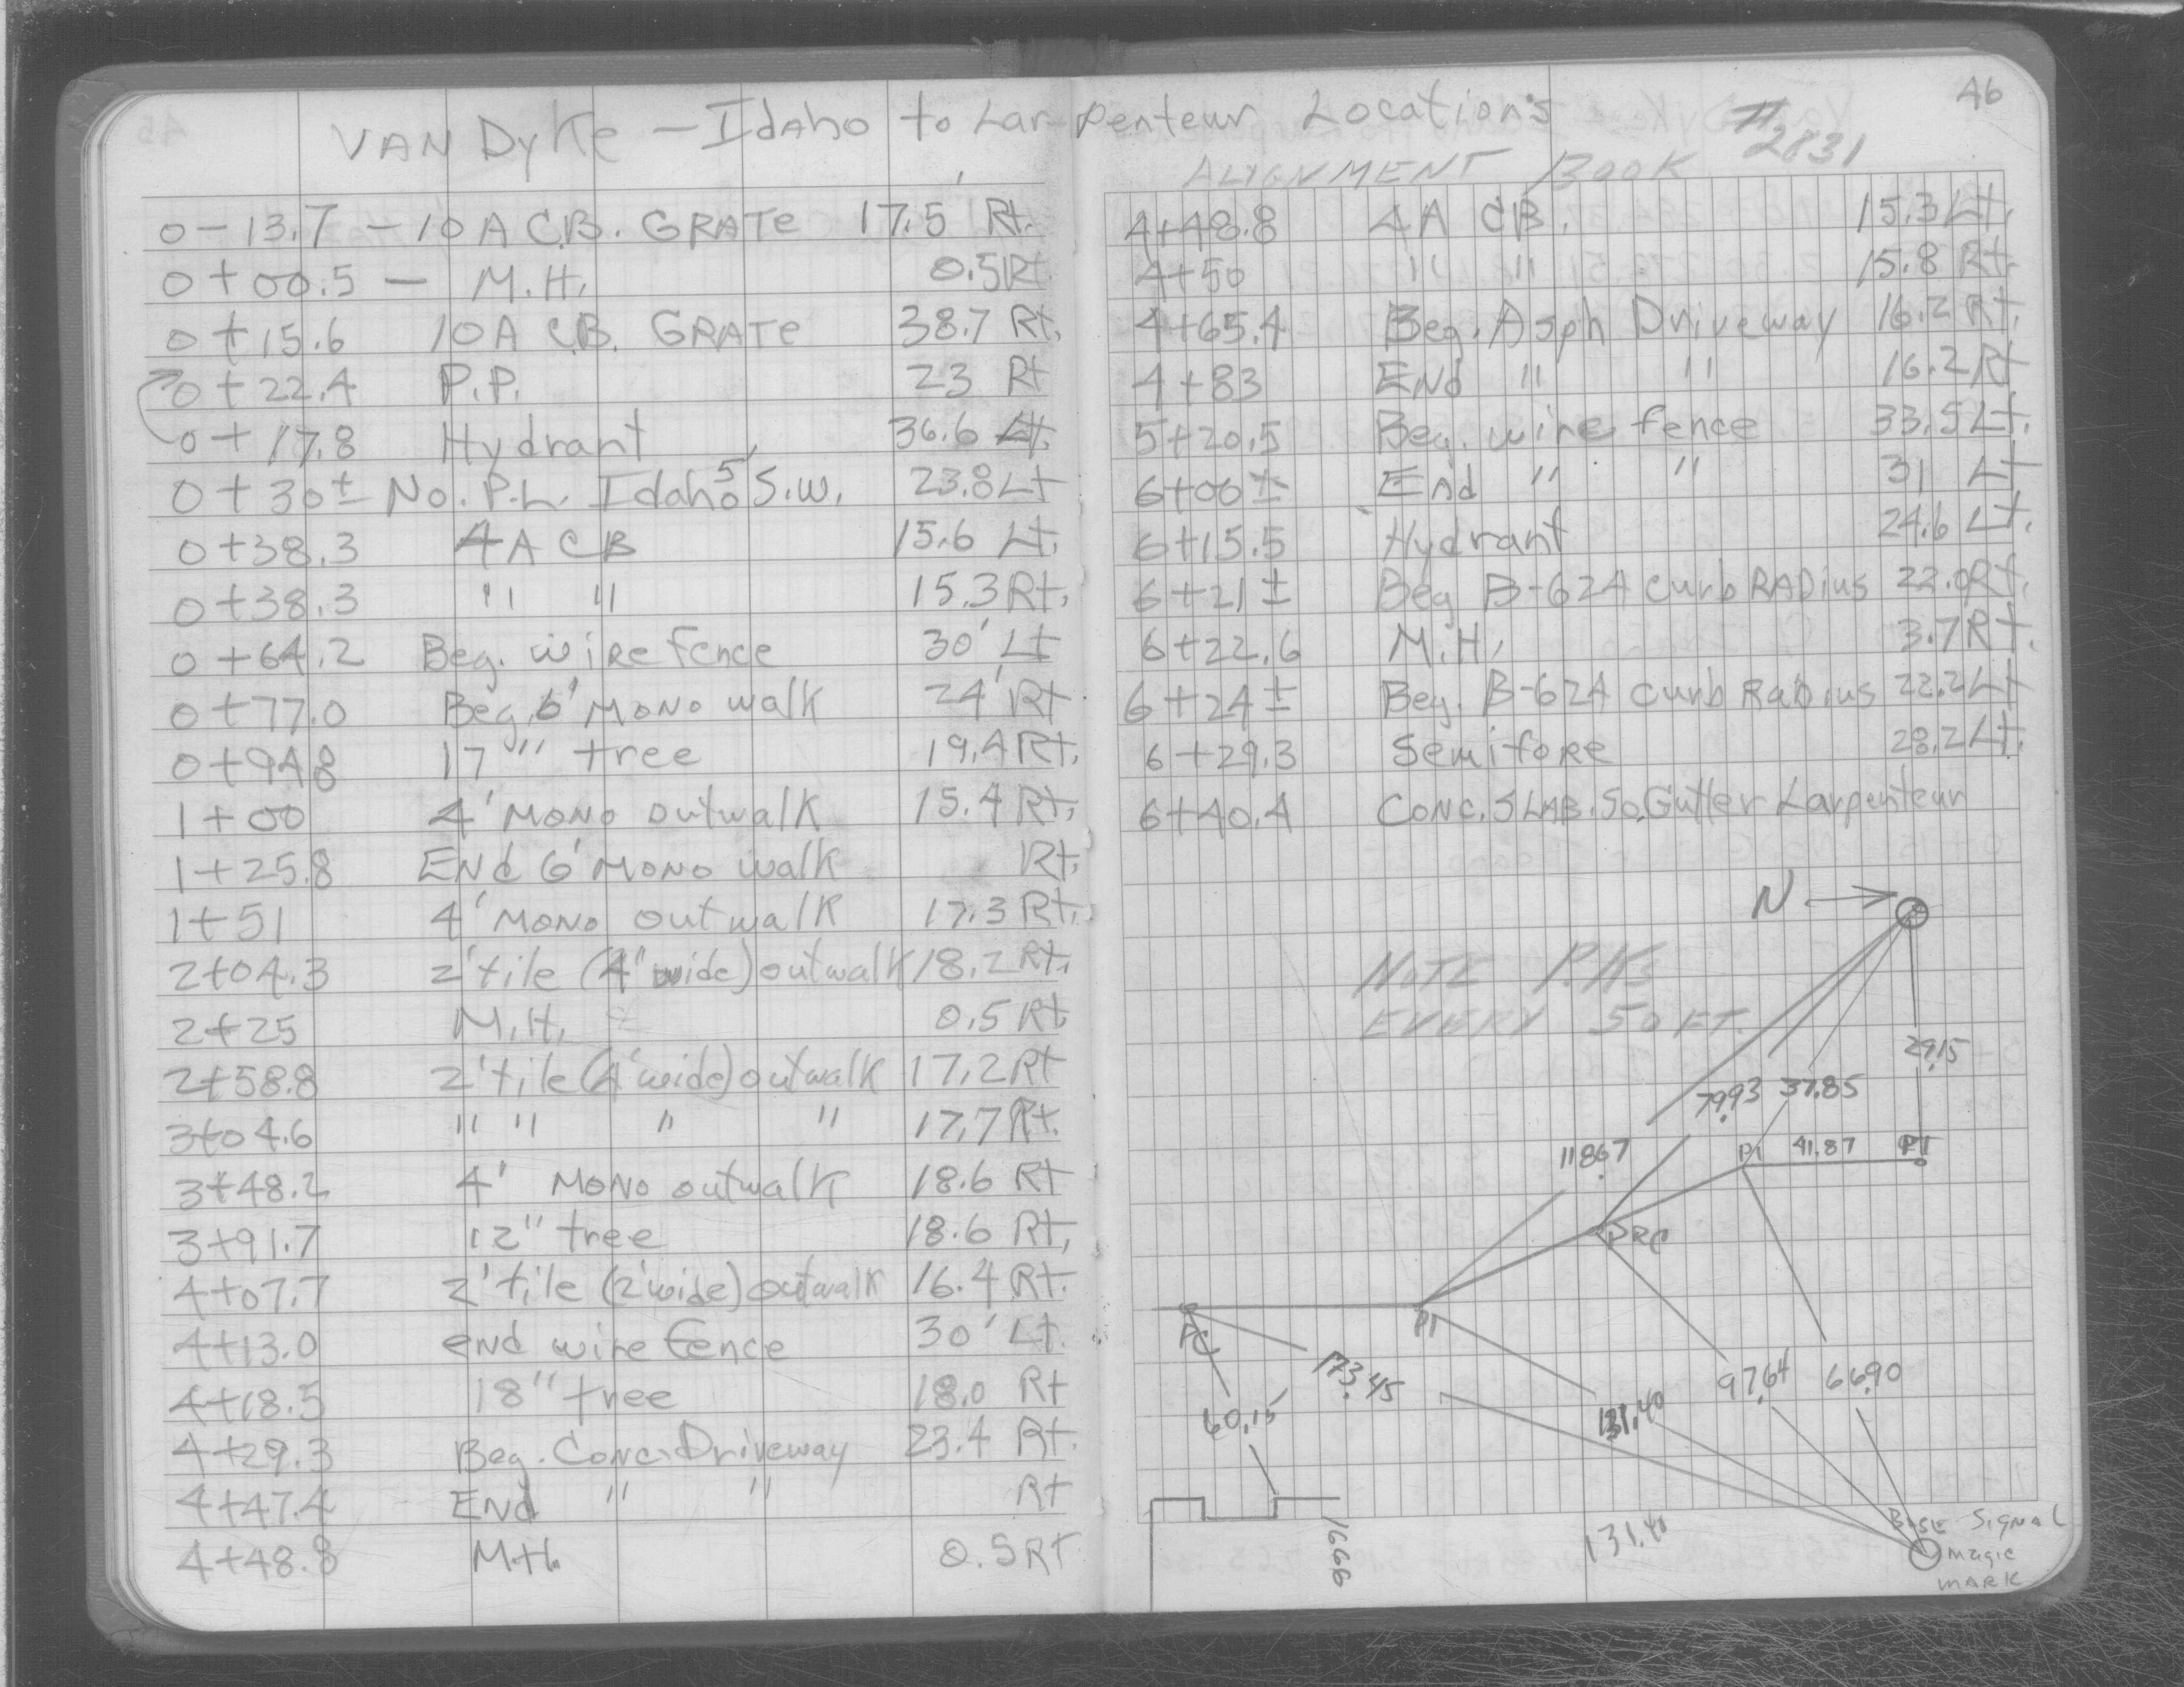 VAN DyKe - IdAho to Larpenteur Locations
46
ALIGNMENT BOOK #2831
0-13.7 - 10 A C.B. GRATe 17.5' Rt.
0+00.5 - M.H. 0.5 Rt.
0+15.6 10 A C.B. GRATe 38.7 Rt.
0+22.4 P.P. 23 Rt
0+17.8 Hydrant 36.6 Lt.
0+30± No. P.L. Idaho 5' S.W. 23.8 Lt
0+38.3 4 A CB 15.6 Lt.
0+38.3 " " 15.3 Rt.
0+64.2 Beg. wire fence 30' Lt
0+77.0 Beg. 6' MONO walk 24' Rt
0+94.8 17" tree 19.4 Rt.
1+00 4' MONO outwalk 15.4 Rt.
1+25.8 ENd 6' MONO walk Rt.
1+51 4' MONO outwalk 17.3 Rt.
2+04.3 2' tile (4' wide) outwalk 18.2 Rt.
2+25 M.H. 0.5 Rt
2+58.8 2' tile (4' wide) outwalk 17.2 Rt
3+04.6 " " " " 17.7 Rt.
3+48.2 4' MONO outwalk 18.6 Rt
3+91.7 12" tree 18.6 Rt.
4+07.7 2' tile (2' wide) outwalk 16.4 Rt.
4+13.0 end wire fence 30' Lt.
4+18.5 18" tree 18.0 Rt
4+29.3 Beg. Conc. Driveway 23.4 Rt.
4+47.4 ENd " " Rt
4+48.8 M.H. 0.5 Rt
4+48.8 4A CB. 15.3 Lt.
4+50 " " 15.8 Rt.
4+65.4 Beg. Asph Driveway 16.2 Rt.
4+83 ENd " " 16.2 Rt
5+20.5 Beg. wire fence 33.5 Lt.
6+00± End " " 31 Lt
6+15.5 Hydrant 24.6 Lt.
6+21± Beg B-624 curb RADius 22.0 Rt.
6+22.6 M.H. 3.7 Rt.
6+24± Beg. B-624 curb RaDius 22.2 Lt
6+29.3 Semifore 28.2 Lt.
6+40.4 CONC. SLAB. So. Gutter Larpenteur
N
NOTE P.K.s
EVERY 50 FT.
29.15
79.93 37.85
118.67 PI 41.87 PT
PRC
PC PI
173.45 97.64 66.90
60.15 131.40
1666 131.40
BASE SIGNAL
magic
MARK